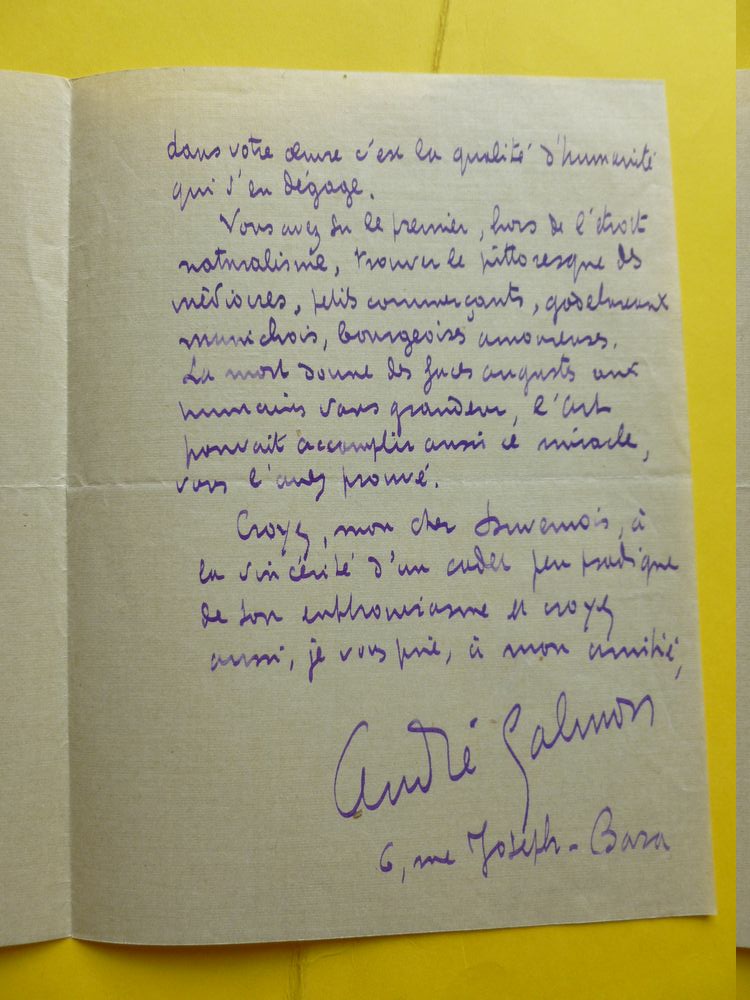 dans votre œuvre c'est la qualité d'humanité
qui s'en dégage.
Vous avez su le premier, hors de l'étroit
naturalisme, trouver le pittoresque des
médiocres, petits commerçants, godelureaux
munichois, bourgeoises amoureuses.
La mort donne des faces augustes aux
humains sans grandeur, l'art
pouvait accomplir aussi ce miracle,
vous l'avez prouvé.
Croyez, mon cher Duvernois, à
la sincérité d'un cadet peu prodigue
de son enthousiasme et croyez
aussi, je vous prie, à mon amitié,
André Salmon
6, rue Joseph-Bara